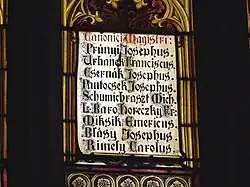 Canonici Magistri:
Prúnyi Josephus.
Urbanek Franciscus.
Csernák Josephus.
Tvutocsek Josephus.
Schumichraszt Mich.
L. Baro Horeczky Fr:
Miksik Emericus.
Blásy Josephus.
Rimely Carolus.